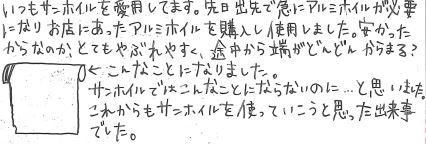 いつもサンホイルを愛用してます。先日出先で急にアルミホイルが必要
になりお店にあったアルミホイルを購入し使用しました。安かった
からなのか、とてもやぶれやすく、途中から端がどんどんからまる?
←こんなことになりました。
サンホイルではこんなことにならないのに…と思いました。
これからもサンホイルを使っていこうと思った出来事
でした。